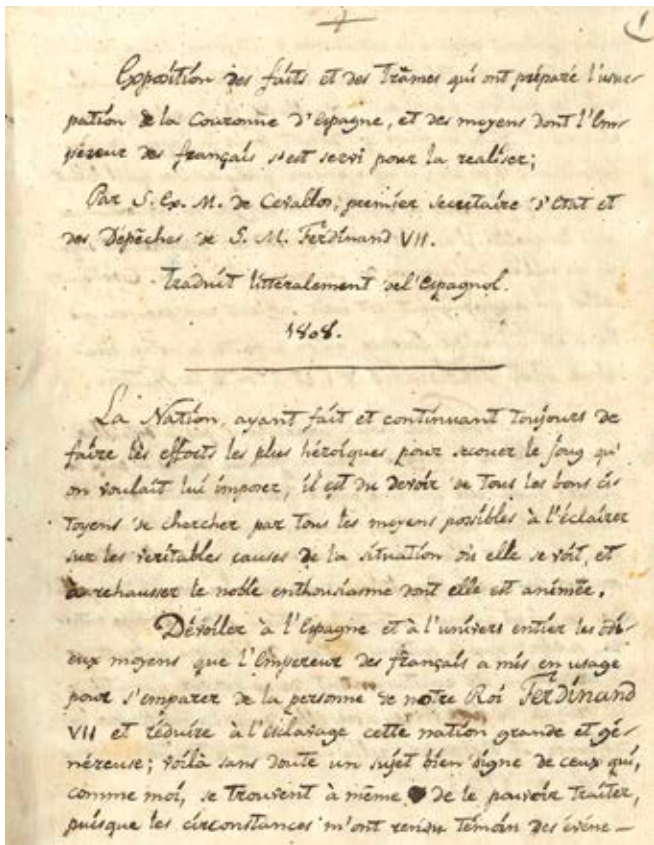 1
Exposition des faits et des trâmes qui ont préparé l'usur-
pation de la Couronne d'Espagne, et des moyens dont l'Em-
péreur des français s'est servi pour la realiser;
Par S. Ex. M. de Cevallos, premier secretaire d'Etat et
des Dépêches de S. M. Ferdinand VII.
Traduit littéralement de l'Espagnol.
1808.
La Nation, ayant fait et continuant toujours de
faire les efforts les plus héroïques pour secouer le joug qu'
on voulait lui imposer, il est du devoir de tous les bons ci-
toyens de chercher par tous les moyens possibles à l'éclairer
sur les veritables causes de la situation où elle se voit, et
à rehausser le noble enthousiasme dont elle est animée.
Dévoiler à l'Espagne et à l'univers entier les odi-
eux moyens que l'Empereur des français a mis en usage
pour s'emparer de la personne de notre Roi Ferdinand
VII et réduire à l'esclavage cette nation grande et gé-
néreuse; voilà sans doute un sujet bien digne de ceux qui,
comme moi, se trouvent à même de le pouvoir traiter,
puisque les circonstances m'ont rendu témoin des événe-